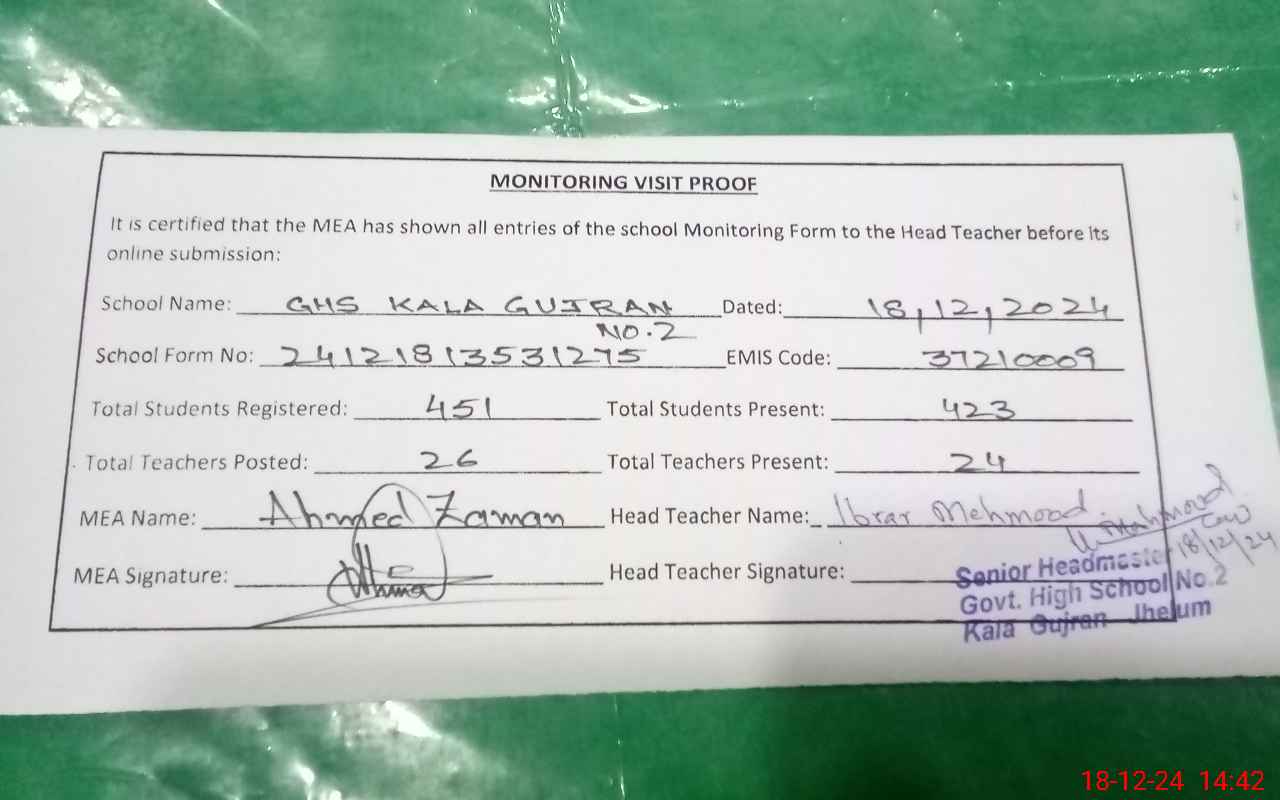 MONITORING VISIT PROOF
It is certified that the MEA has shown all entries of the school Monitoring Form to the Head Teacher before its
online submission:
School Name: GHS KALA GUJRAN NO.2 Dated: 18,12,2024
School Form No: 24121813531275 EMIS Code: 37210009
Total Students Registered: 451 Total Students Present: 423
Total Teachers Posted: 26 Total Teachers Present: 24
MEA Name: Ahmed Zaman Head Teacher Name: Ibrar Mehmood
MEA Signature: Head Teacher Signature:
18/12/24
Senior Headmaster
Govt. High School No.2
Kala Gujran Jhelum
18-12-24 14:42